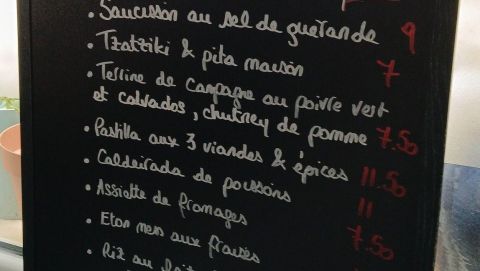 • Saucisson au sel de guérande 9
• Tzatziki & pita maison 7
• Terrine de Campagne au poivre vert
et calvados, chutney de pomme 7.50
• Pastilla aux 3 viandes & épices 11.50
• Caldeirada de poissons 11
• Assiette de fromages 7.50
• Eton mess aux fraises
• Riz au lait